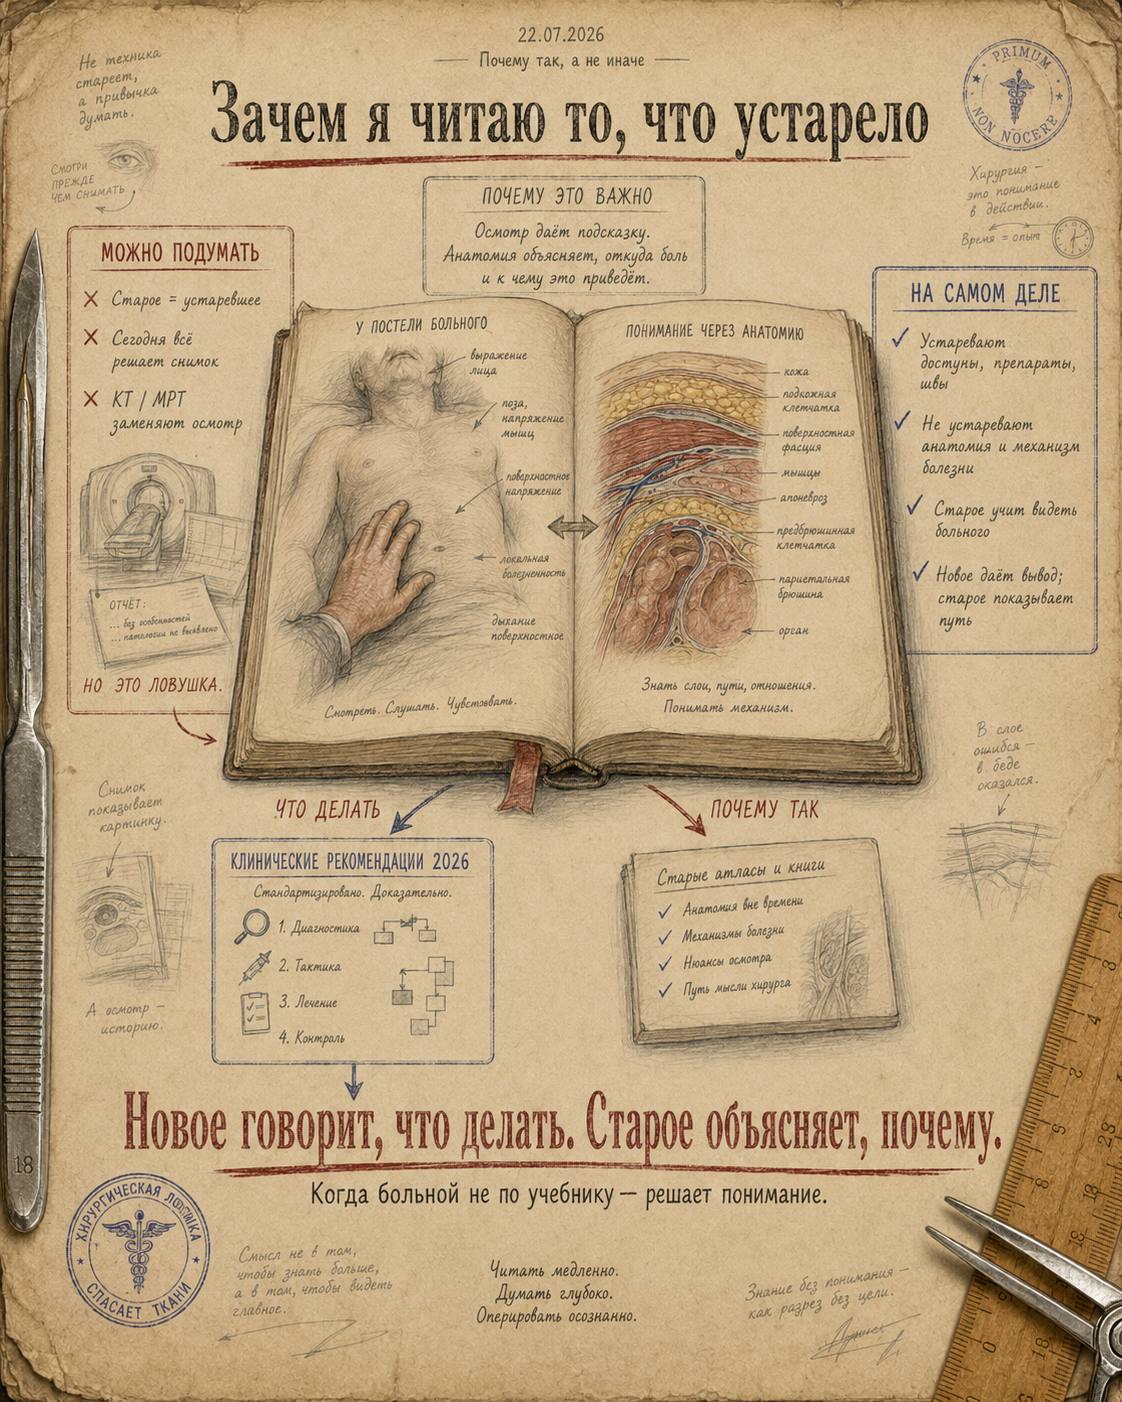 22.07.2026
Почему так, а не иначе
Зачем я читаю то, что устарело
Не техника
стареет,
а привычка
думать.
СМОТРИ
ПРЕЖДЕ
ЧЕМ СНИМАТЬ
PRIMUM
NON NOCERE
Хирургия –
это понимание
в действии.
Время = опыт
ПОЧЕМУ ЭТО ВАЖНО
Осмотр даёт подсказку.
Анатомия объясняет, откуда боль
и к чему это приведёт.
МОЖНО ПОДУМАТЬ
Старое = устаревшее
Сегодня всё
решает снимок
КТ / МРТ
заменяют осмотр
ОТЧЁТ:
... без особенностей
... патологии не выявлено
НО ЭТО ЛОВУШКА.
У ПОСТЕЛИ БОЛЬНОГО
выражение
лица
поза,
напряжение
мышц
поверхностное
напряжение
локальная
болезненность
дыхание
поверхностное
Смотреть. Слушать. Чувствовать.
ПОНИМАНИЕ ЧЕРЕЗ АНАТОМИЮ
кожа
подкожная
клетчатка
поверхностная
фасция
мышцы
апоневроз
предбрюшинная
клетчатка
париетальная
брюшина
орган
Знать слои, пути, отношения.
Понимать механизм.
НА САМОМ ДЕЛЕ
Устаревают
доступы, препараты,
швы
Не устаревают
анатомия и механизм
болезни
Старое учит видеть
больного
Новое даёт вывод;
старое показывает
путь
Снимок
показывает
картинку.
А осмотр –
историю.
В слое
ошибся –
в беде
оказался.
ЧТО ДЕЛАТЬ
КЛИНИЧЕСКИЕ РЕКОМЕНДАЦИИ 2026
Стандартизировано. Доказательно.
1. Диагностика
2. Тактика
3. Лечение
4. Контроль
ПОЧЕМУ ТАК
Старые атласы и книги
Анатомия вне времени
Механизмы болезни
Нюансы осмотра
Путь мысли хирурга
Новое говорит, что делать. Старое объясняет, почему.
Когда больной не по учебнику — решает понимание.
18
ХИРУРГИЧЕСКАЯ
СПАСАЕТ ТКАНИ
Смысл не в том,
чтобы знать больше,
а в том, чтобы видеть
главное.
Читать медленно.
Думать глубоко.
Оперировать осознанно.
Знание без понимания –
как разрез без цели.